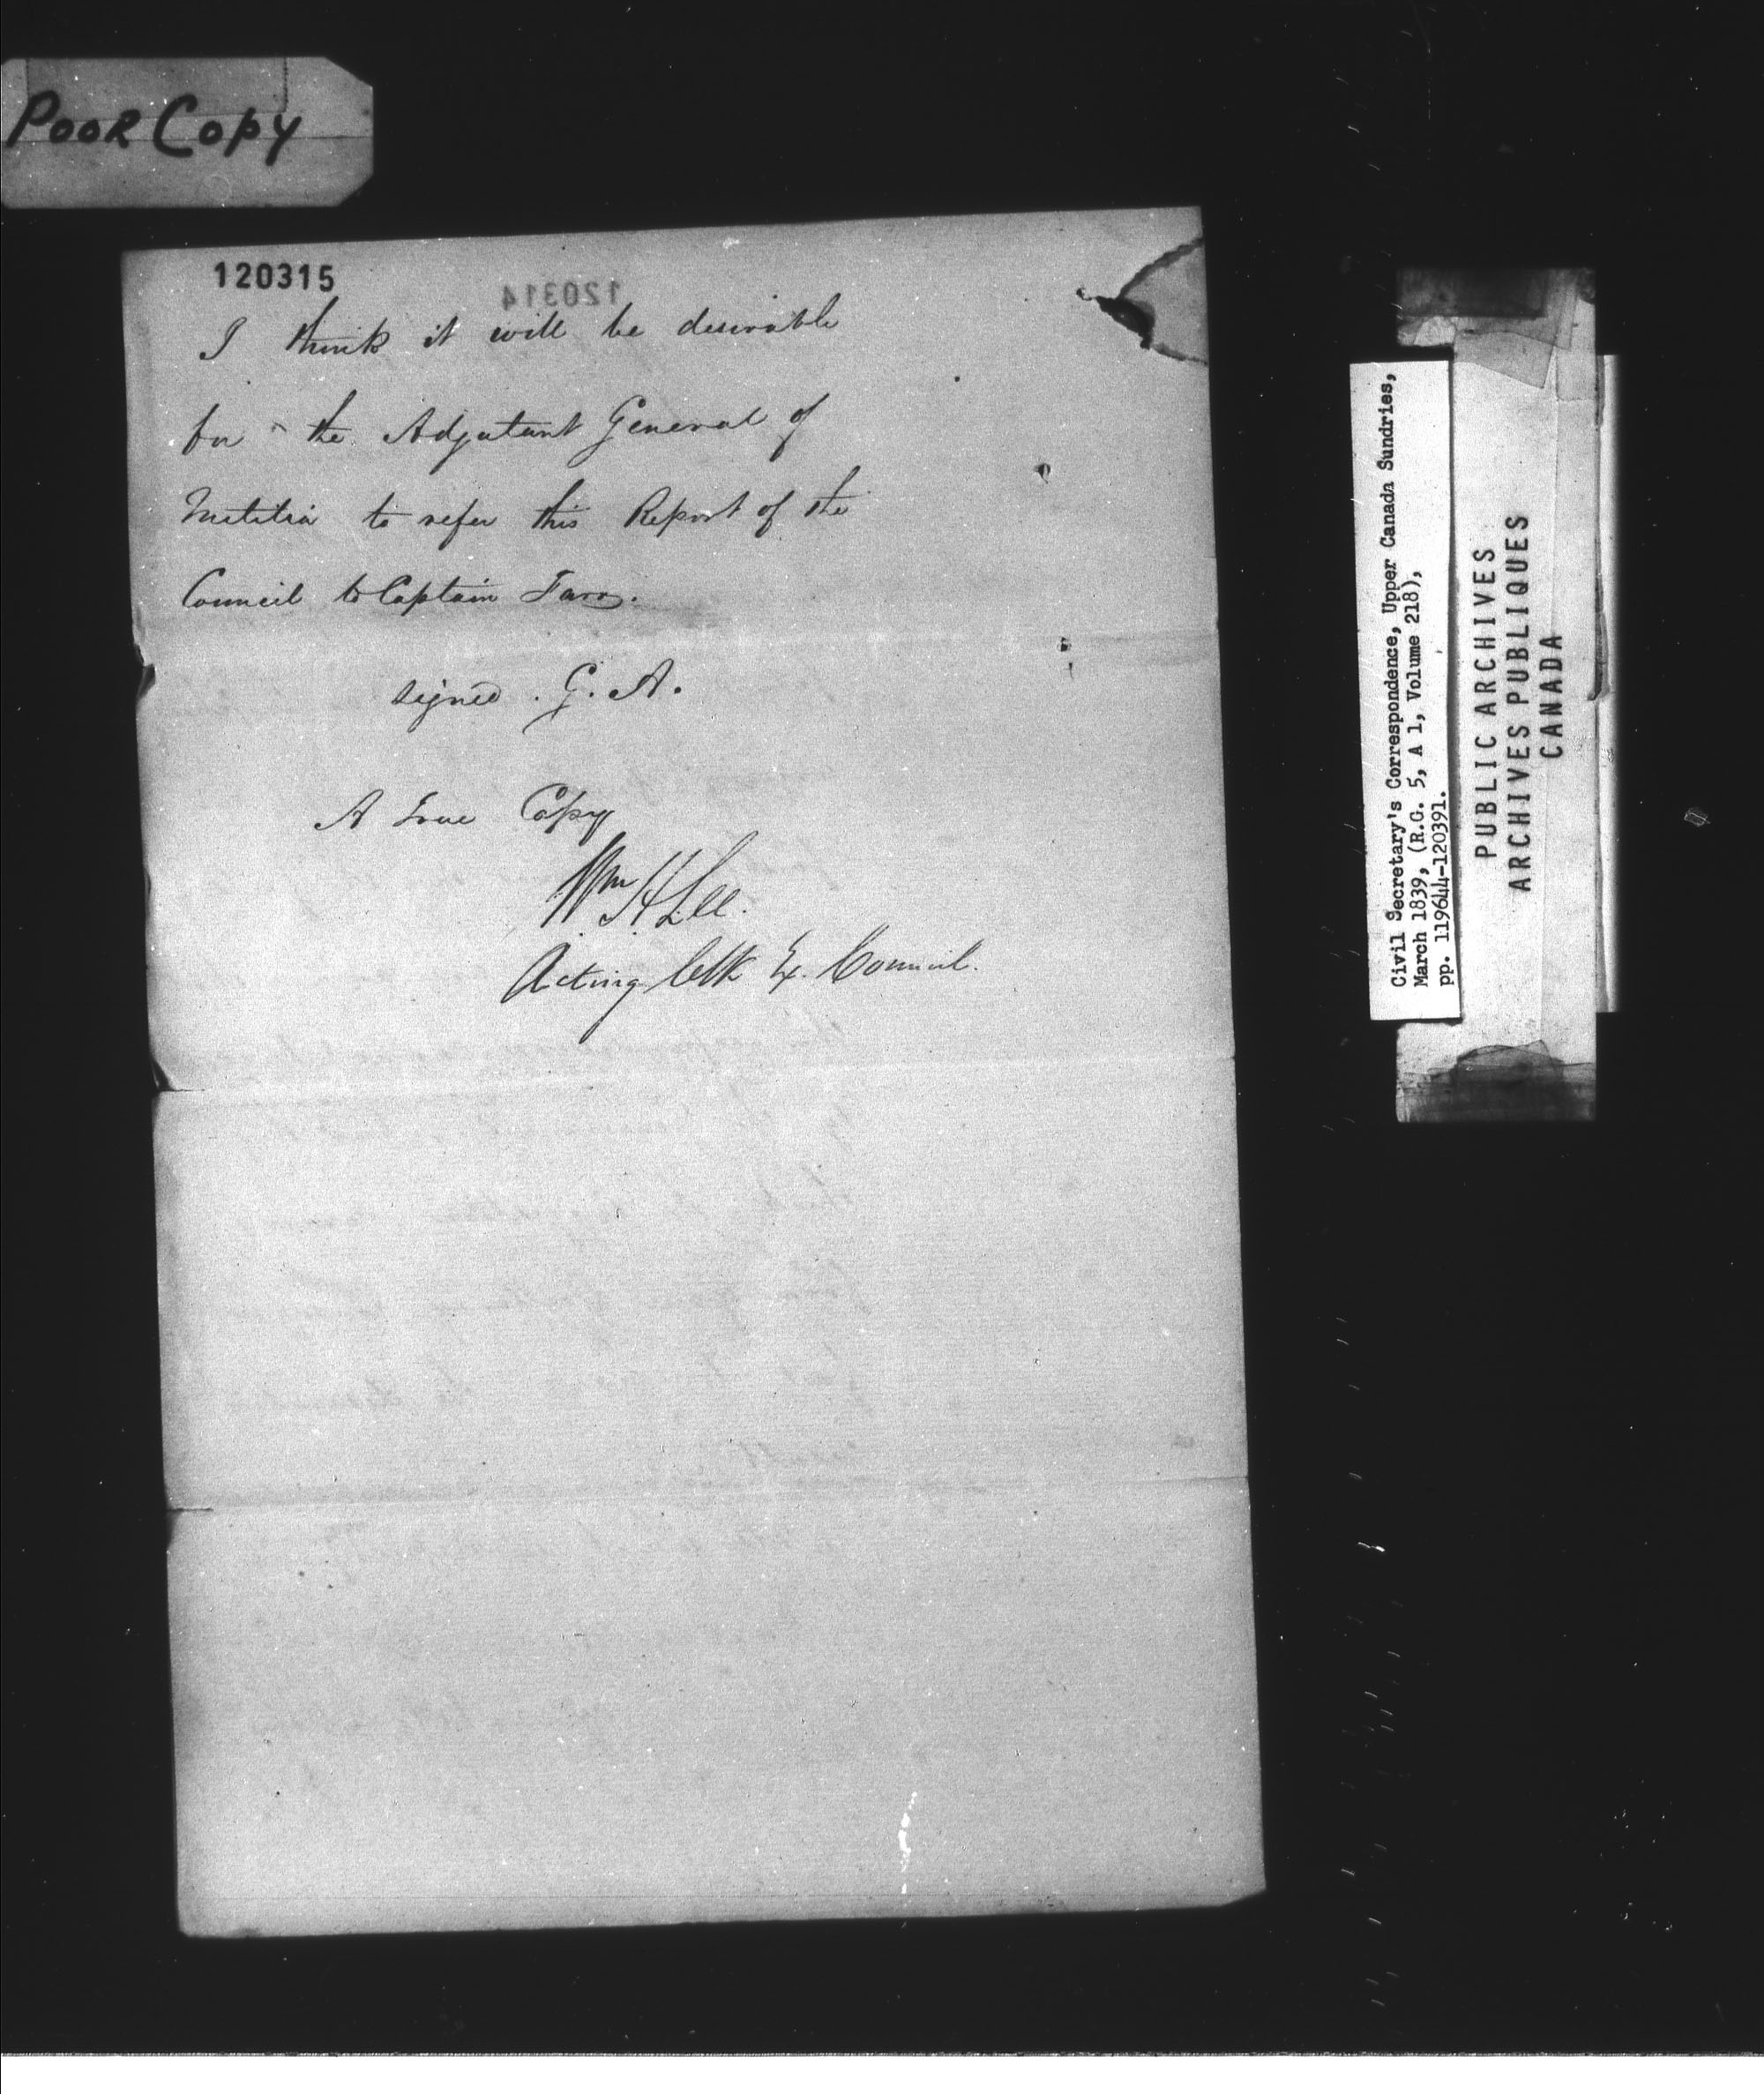 Poor Copy
120315
120314
I think it will be desirable
for the Adjutant General of
Militia to refer this Report of the
Council to Captain
signed . G. A.
A True Copy
Wm H Lee.
Acting Clk Ex. Council.
Civil Secretary's Correspondence, Upper Canada Sundries,
March 1839, (R.G. 5, A 1, Volume 218),
pp. 119644-120391.
PUBLIC ARCHIVES
ARCHIVES PUBLIQUES
CANADA